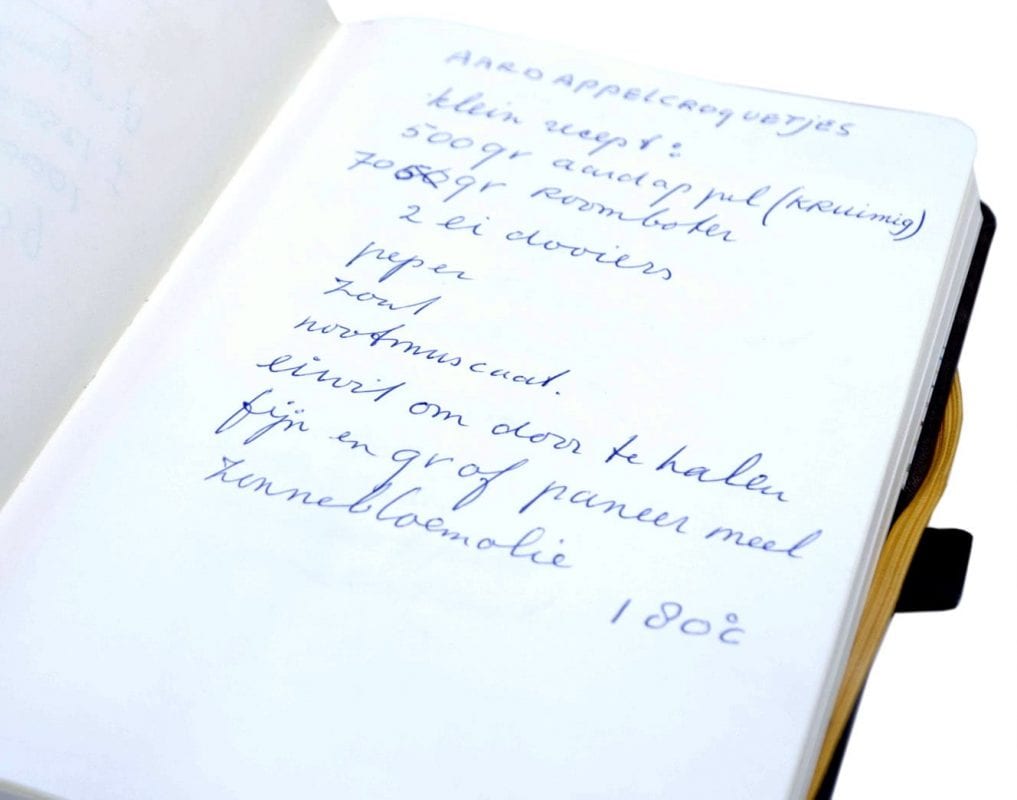 AARDAPPELCROQUETJES
klein recept:
500gr aardappel (KRuimig)
70 gr Roomboter
2 ei dooiers
peper
zout
nootmuscaat.
eiwit om door te halen
fijn en grof paneer meel
zonnebloemolie
180°c